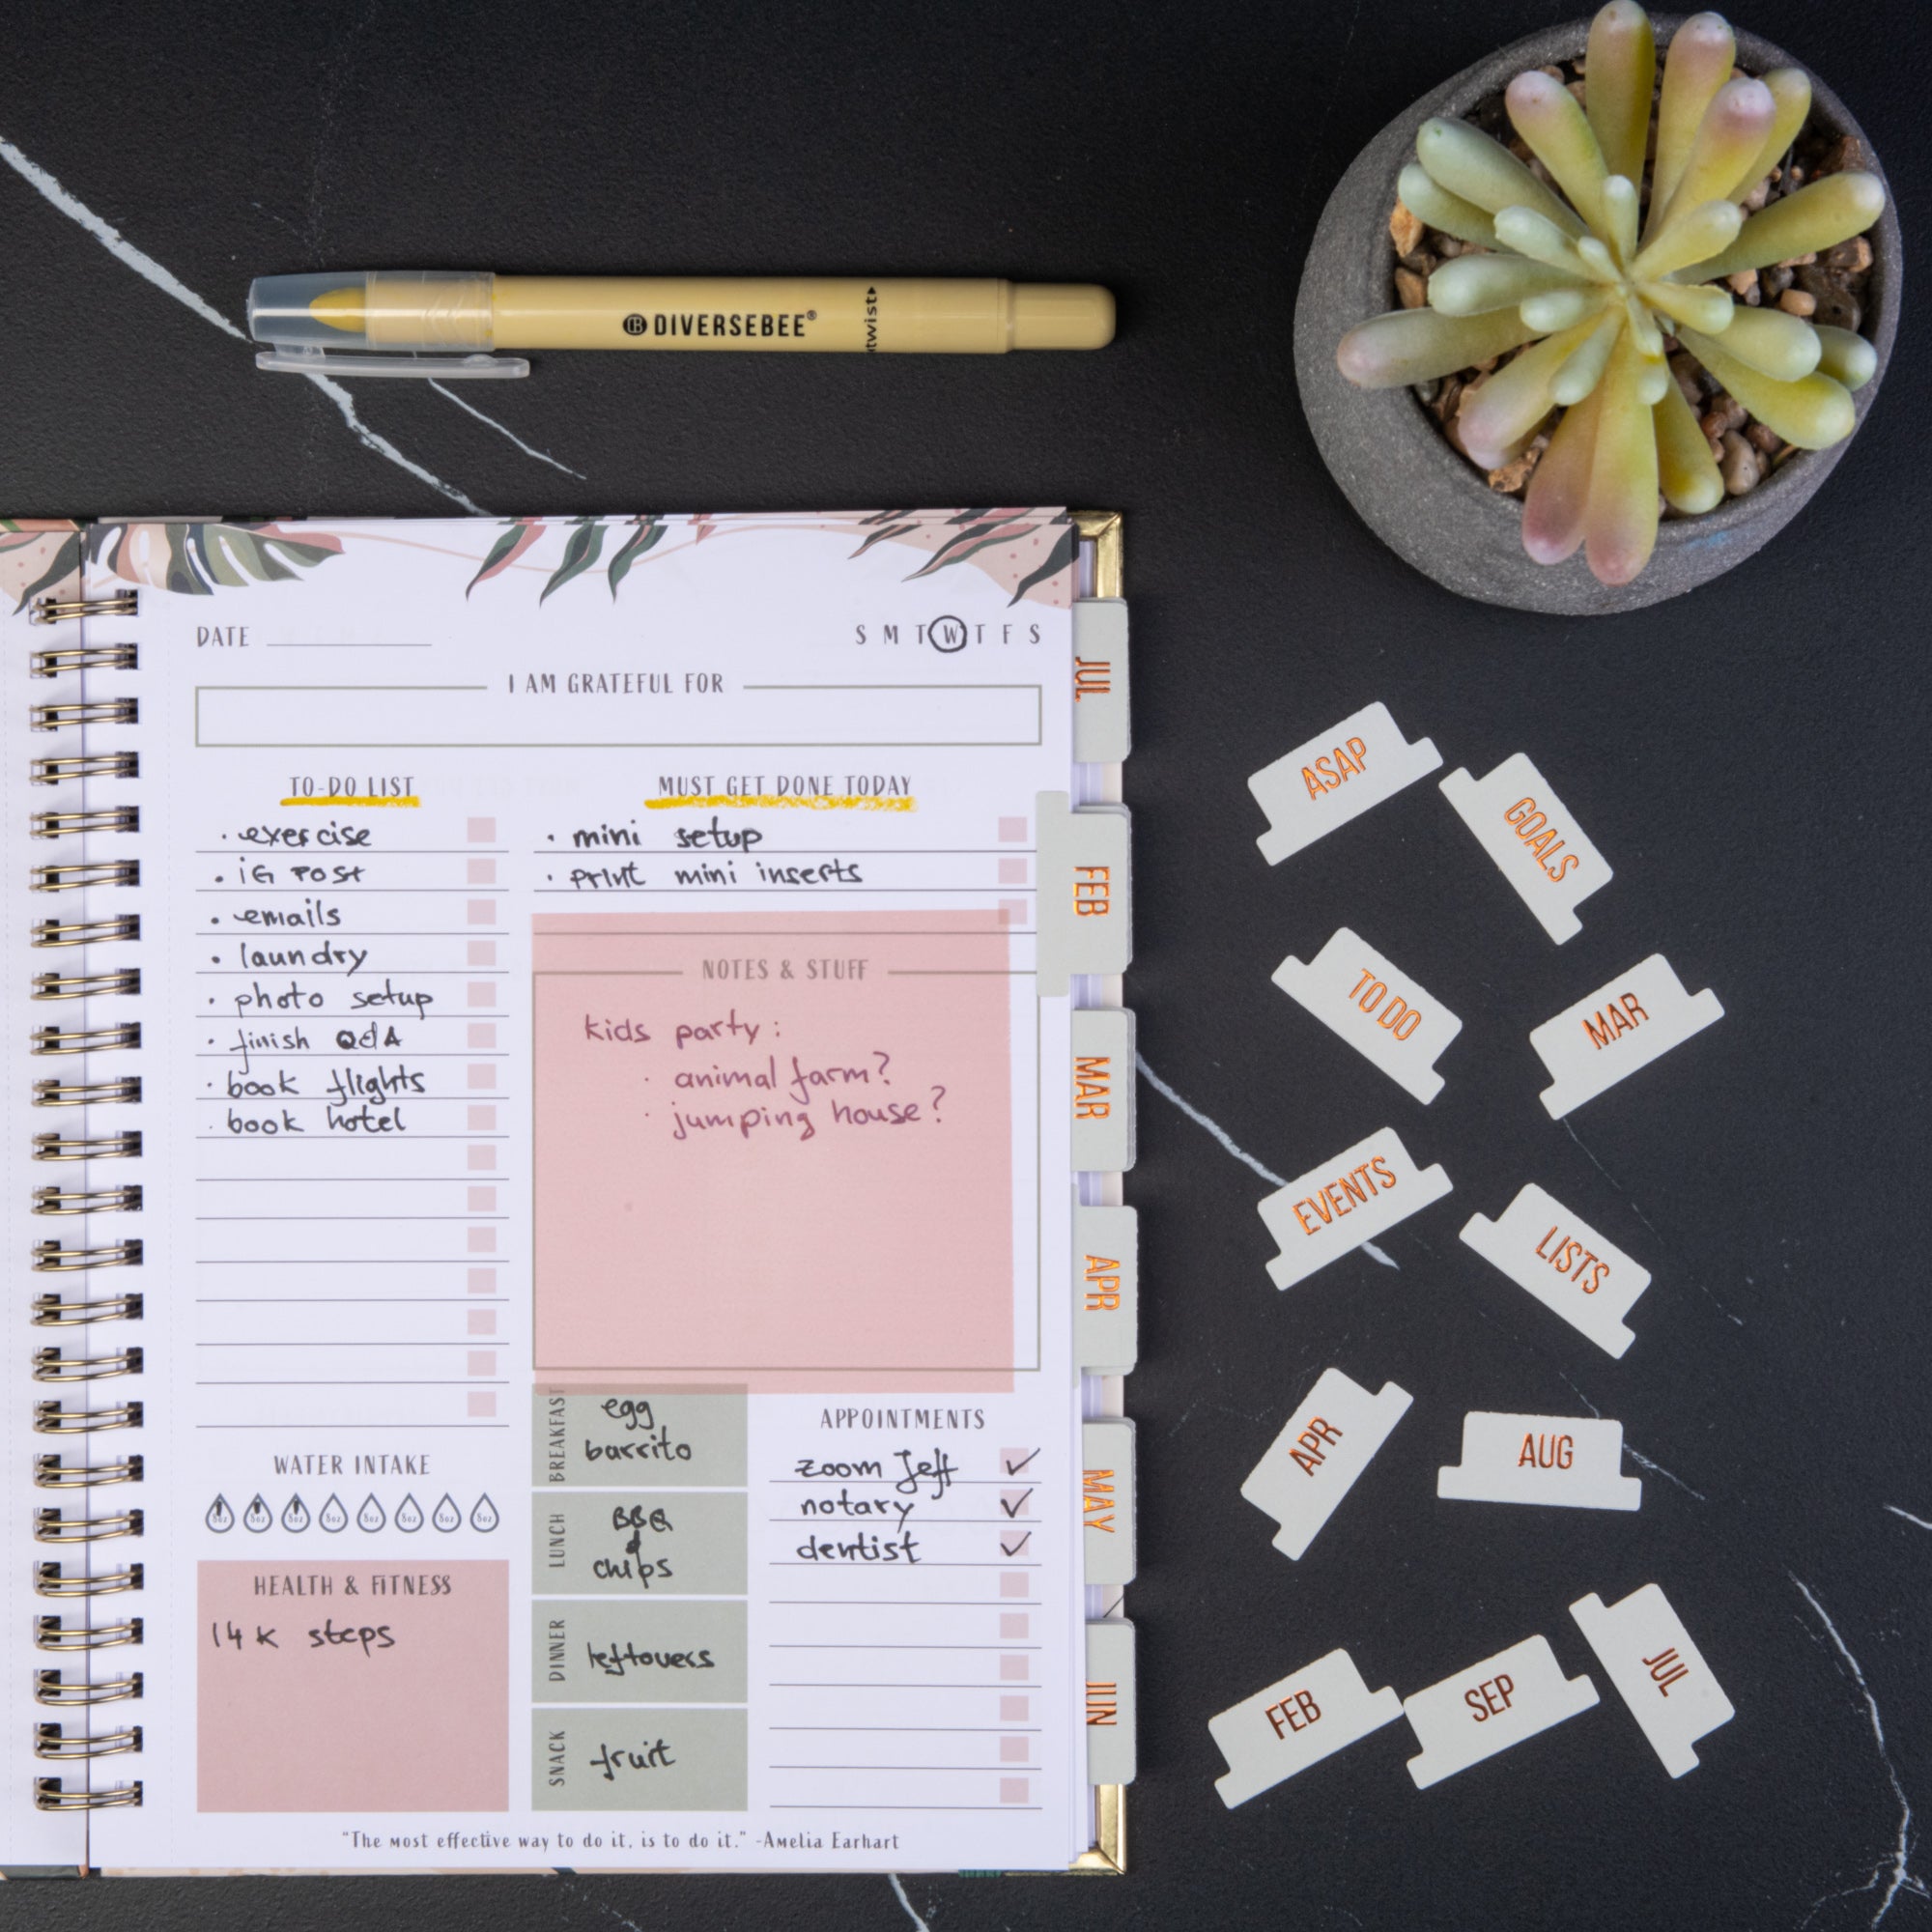 DIVERSEBEE®
twist
DATE
S M T W T F S
I AM GRATEFUL FOR
TO-DO LIST
· exercise
· iG POST
· emails
· laundry
· photo setup
· finish Q&A
· book flights
· book hotel
MUST GET DONE TODAY
· mini setup
· print mini inserts
NOTES & STUFF
kids party :
· animal farm?
· jumping house?
WATER INTAKE
8oz 8oz 8oz 8oz 8oz 8oz 8oz 8oz
HEALTH & FITNESS
14K steps
BREAKFAST
egg
barrito
LUNCH
BBQ
&
chips
DINNER
leftovers
SNACK
fruit
APPOINTMENTS
zoom Jeff ✓
notary ✓
dentist ✓
"The most effective way to do it, is to do it." -Amelia Earhart
JUL
FEB
MAR
APR
MAY
JUN
ASAP
GOALS
TO DO
MAR
EVENTS
LISTS
APR
AUG
FEB
SEP
JUL